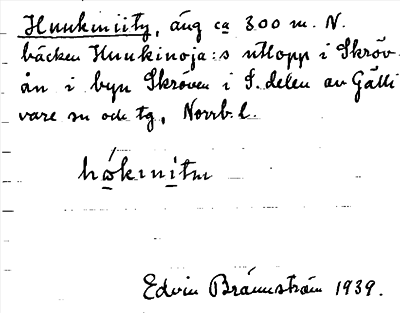 Huukiniity, äng ca 300 m. N.
bäcken Huukinoja:s utlopp i Skröv-
ån i byn Skröven i S. delen av Gälli
vare sn och tg, Norrb. l.
Edvin Brännström 1939.